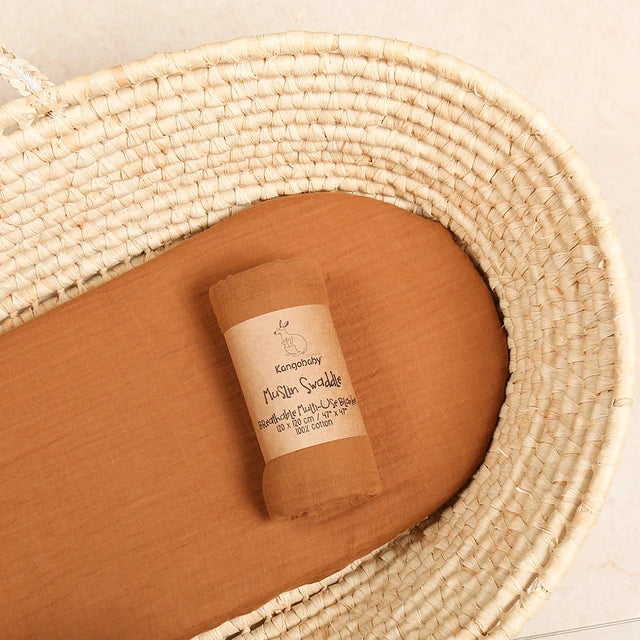 Kangobaby
Muslin Swaddle
Breathable Multi-Use Blanket
120 x 120 cm / 47" x 47"
100% cotton